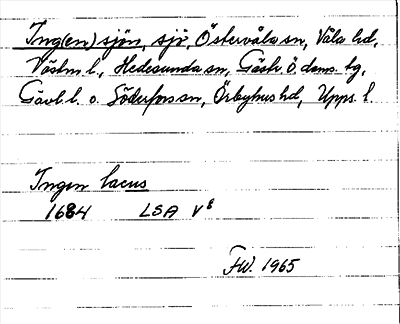 Ing(en)sjön, sjö, Östervåla sn, Våla hd,
Västm l., Hedesunda sn, Gästr. ö. doms. tg,
Gävl. l. o. Söderfors sn, Örbyhus hd, Upps. l.
Ingen lacus
1684 LSA V6
FW. 1965